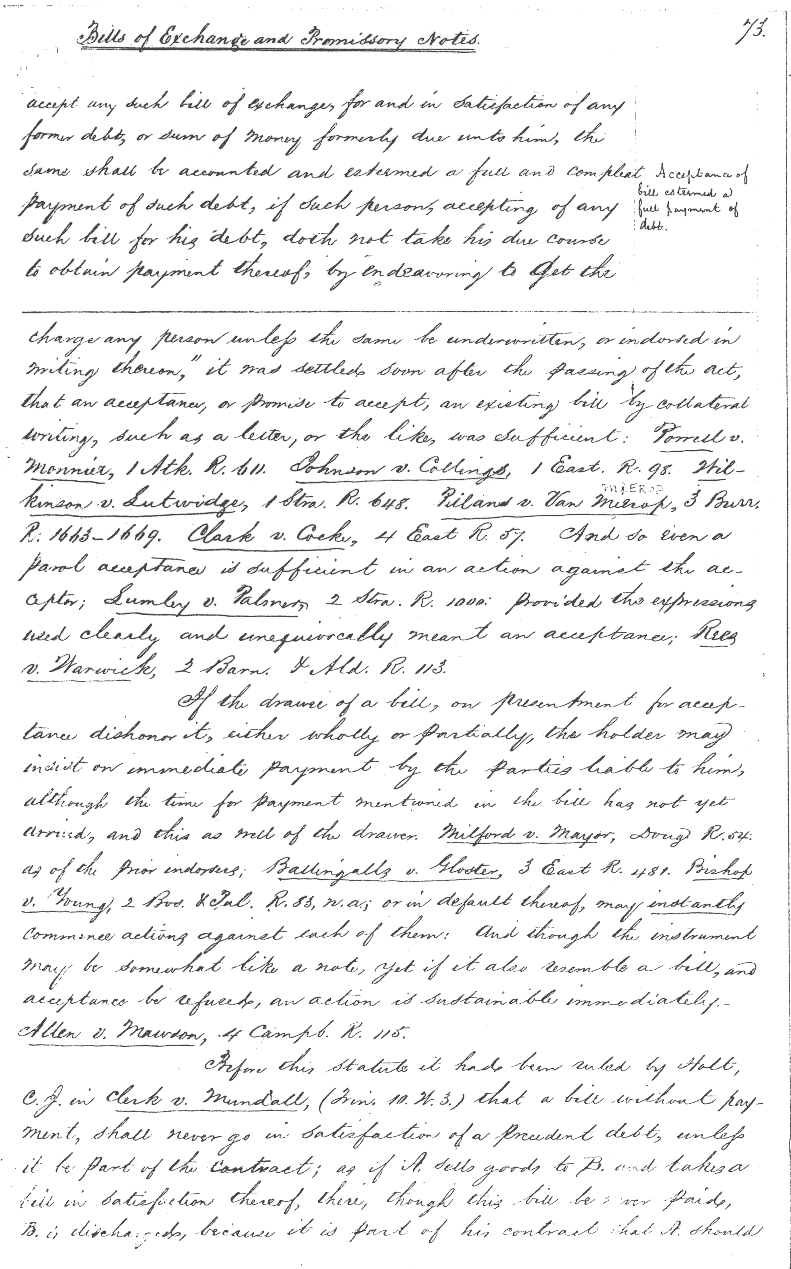 Bills of Exchange and Promissory Notes.
73.
accept any such bill of exchange, for and in satisfaction of any
former debt, or sum of money formerly due unto him, the
same shall be accounted and esteemed a full and compleat
payment of such debt, if such person, accepting of any
such bill for his debt, doth not take his due course
to obtain payment thereof, by endeavoring to get the
Acceptance of
bill esteemed a
full payment of
debt.
charge any person unless the same be underwritten, or indorsed in
writing thereon," it was settled soon after the passing of the act,
that an acceptance, or promise to accept, an existing bill by collateral
writing, such as a letter, or the like, was sufficient: Powell v.
Monnier, 1 Atk. R. 611. Johnson v. Collings, 1 East. R. 98. Wil-
kinson v. Lutwidge, 1 Stra. R. 648. Pilans v. Van Mierop, 3 Burr.
MIEROP
R. 1663-1669. Clark v. Cock, 4 East R. 57. And so even a
parol acceptance is sufficient in an action against the ac-
ceptor; Lumley v. Palmer, 2 Stra. R. 1000: provided the expressions
used clearly and unequivocally meant an acceptance; Rees
v. Warwick, 2 Barn. & Ald. R. 113.
If the drawee of a bill, on presentment for accep-
tance dishonor it, either wholly or partially, the holder may
insist on immediate payment by the parties liable to him,
although the time for payment mentioned in the bill has not yet
arrived, and this as well of the drawer. Milford v. Mayor, Doug R. 54.
as of the prior indorsers; Ballingalls v. Gloster, 3 East R. 481. Bishop
v. Young, 2 Bos. & Pul. R. 83, n.a; or in default thereof, may instantly
commence actions against each of them: And though the instrument
may be somewhat like a note, yet if it also resemble a bill, and
acceptance be refused, an action is sustainable immediately.-
Allen v. Mawson, 4 Campb. R. 115.
Before this statute it had been ruled by Holt,
C. J. in Clerk v. Mundall, (Trin. 10. W. 3.) that a bill without pay-
ment, shall never go in satisfaction of a precedent debt, unless
it be part of the contract; as if A. sells goods to B. and takes a
bill in satisfaction thereof, there, though this bill be never paid,
B. is discharged, because it is part of his contract that A. should